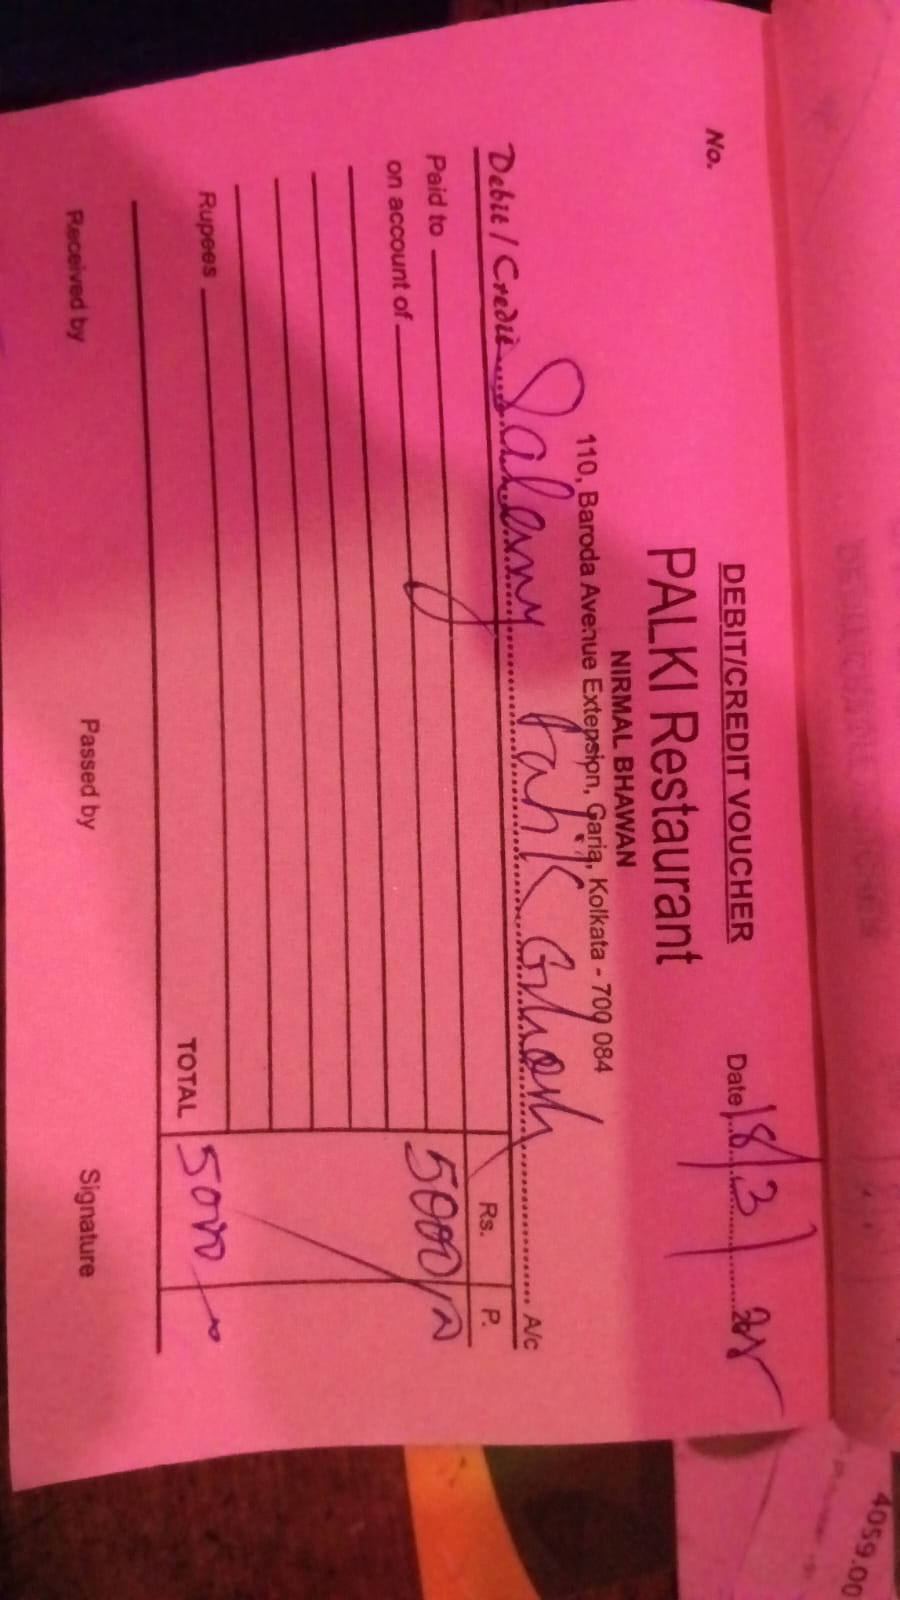 DEBIT/CREDIT VOUCHER
No.
Date 18/3/
PALKI Restaurant
NIRMAL BHAWAN
110, Baroda Avenue Extension, Garia, Kolkata - 700 084
Debit / Credit Salary Ghosh A/c
Rs. P.
Paid to 5000/
on account of
Rupees
TOTAL 5000
Received by Passed by Signature
4059.00